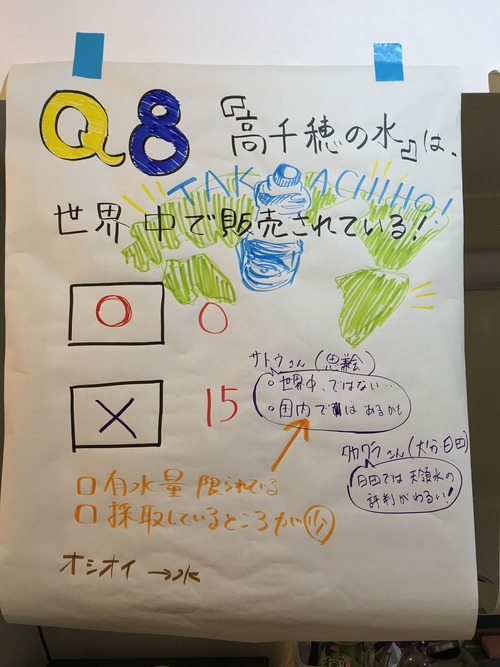 Q8
『高千穂の水』は、
TAKACHIHO!
世界中で販売されている!
○ 0
× 15
サトウさん(思兼)
・世界中、ではない…
・国内ではあるかも
タカクラさん(大分・日田)
日田では天領水の
評判がわるい!
□有水量 限られている
□採取しているところが少
オシオイ→水